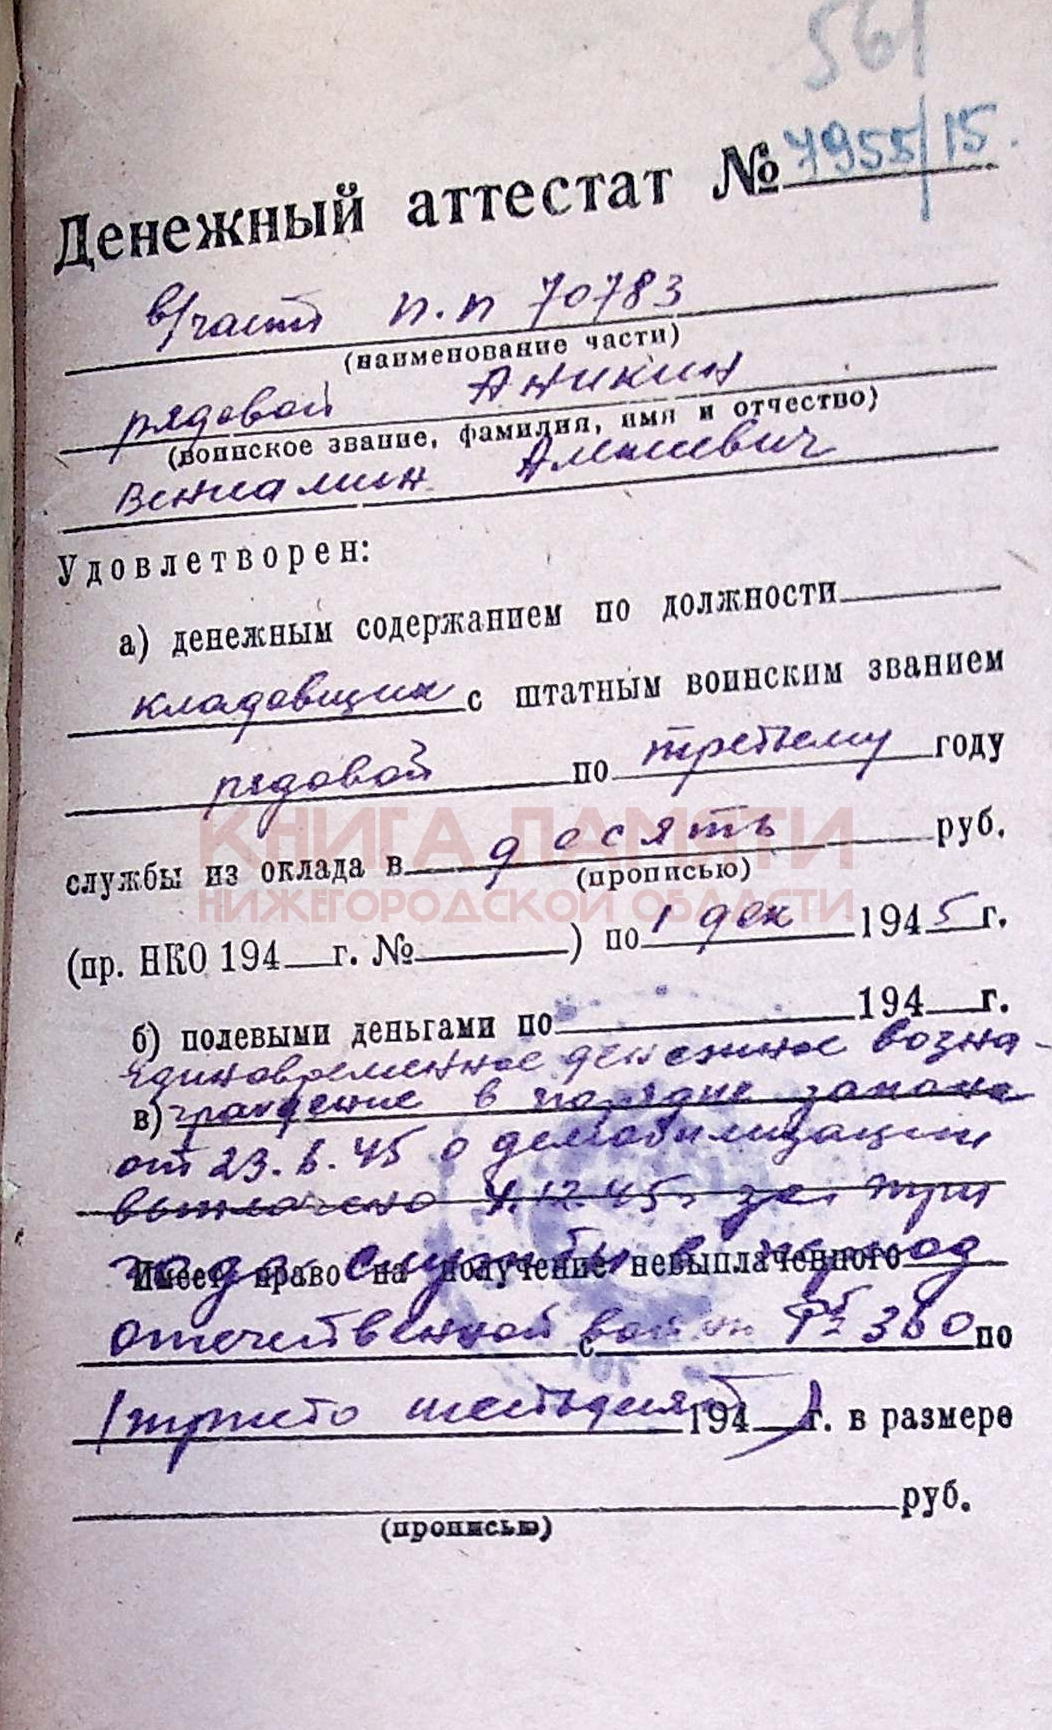 561
Денежный аттестат № 7955/15.
в/части п.п 70783
(наименование части)
рядовой Аникин
(воинское звание, фамилия, имя и отчество)
Вениамин
Удовлетворен:
а) денежным содержанием по должности
кладовщик с штатным воинским званием
рядовой по третьему году
службы из оклада в десять руб.
(прописью)
КНИГА ПАМЯТИ
НИЖЕГОРОДСКОЙ ОБЛАСТИ
(пр. НКО 194 г. № ) по 1 дек 1945 г.
б) полевыми деньгами по 194 г.
Единовременное денежное возна-
в) граждение в порядке закона
от 23.6.45 о демобилизации
выплачено 4.12.45г за три
года службы в период
Имеет право на получение невыплаченного
отечественной войны 360
с по
(триста шестьдесят)
194 г. в размере
руб.
(прописью)